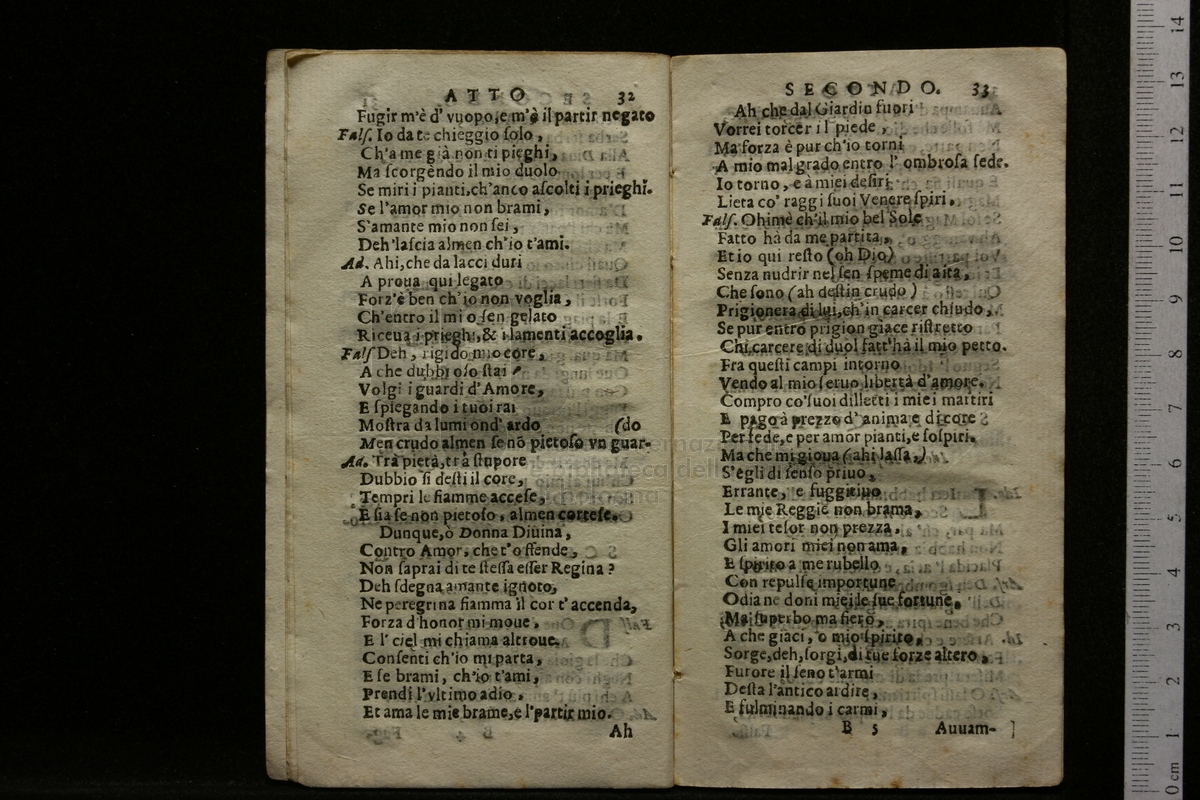 ATTO 32
Fugir m'è d' vuopo,e m'è il partir negato
Falſ. Io da te chieggio ſolo,
Ch'a me già non ti pieghi,
Ma ſcorgendo il mio duolo
Se miri i pianti,ch'anco aſcolti i prieghi.
Se l'amor mio non brami,
S'amante mio non ſei,
Deh'laſcia almen ch'io t'ami.
Ad. Ahi,che da lacci duri
A proua qui legato
Forz'è ben ch'io non voglia,
Ch'entro il mio ſen gelato
Riceua i prieghi,& i lamenti accoglia.
Falſ Deh, rigido mio core,
A che dubbioſo ſtai
Volgi i guardi d'Amore,
E ſpiegando i tuoi rai
Moſtra da lumi ond' ardo (do
Men crudo almen ſe nō pietoſo vn guar-
Ad. Trà pietà,trà ſtupore
Dubbio ſi deſti il core,
Tempri le fiamme acceſe,
E ſia ſe non pietoſo, almen corteſe.
Dunque,ò Donna Diuina,
Contro Amor, che t'offende,
Non ſaprai di te ſteſſa eſſer Regina?
Deh ſdegna amante ignoto,
Ne peregrina fiamma il cor t'accenda,
Forza d'honor mi moue,
E l' ciel mi chiama altroue.
Conſenti ch'io mi parta,
E ſe brami, ch'io t'ami,
Prendi l'vltimo adio,
Et ama le mie brame,e l'partir mio.
Ah
SECONDO. 33
Ah che dal Giardin fuori
Vorrei torcer il piede,
Ma forza è pur ch'io torni
A mio mal grado entro l' ombroſa ſede.
Io torno, e à miei deſiri
Lieta co' raggi ſuoi Venere ſpiri.
Falſ. Ohimè ch'il mio bel Sole
Fatto hà da me partita,
Et io qui reſto (oh Dio)
Senza nudrir nel ſen ſpeme di aita,
Che ſono (ah deſtin crudo)
Prigionera di lui,ch'in carcer chiudo,
Se pur entro prigion giace riſtretto
Chi carcere di duol fatt'hà il mio petto.
Fra queſti campi intorno
Vendo al mio ſeruo libertà d'amore.
Compro co'ſuoi dilletti i miei martiri
E pago à prezzo d'anima e di core
Per fede,e per amor pianti,e ſoſpiri.
Ma che mi gioua (ahi laſſa,)
S'egli di ſenſo priuo,
Errante, e fuggitiuo
Le mie Reggie non brama,
I miei teſor non prezza,
Gli amori miei non ama,
E ſpirito a me rubello
Con repulſe importune
Odia ne doni miei le ſue fortune.
Mà ſuperbo ma fiero,
A che giaci, o mio ſpirito,
Sorge,deh,ſorgi,di tue forze altero,
Furore il ſeno t'armi
Deſta l'antico ardire,
E fulminando i carmi,
B 5 Auuam-